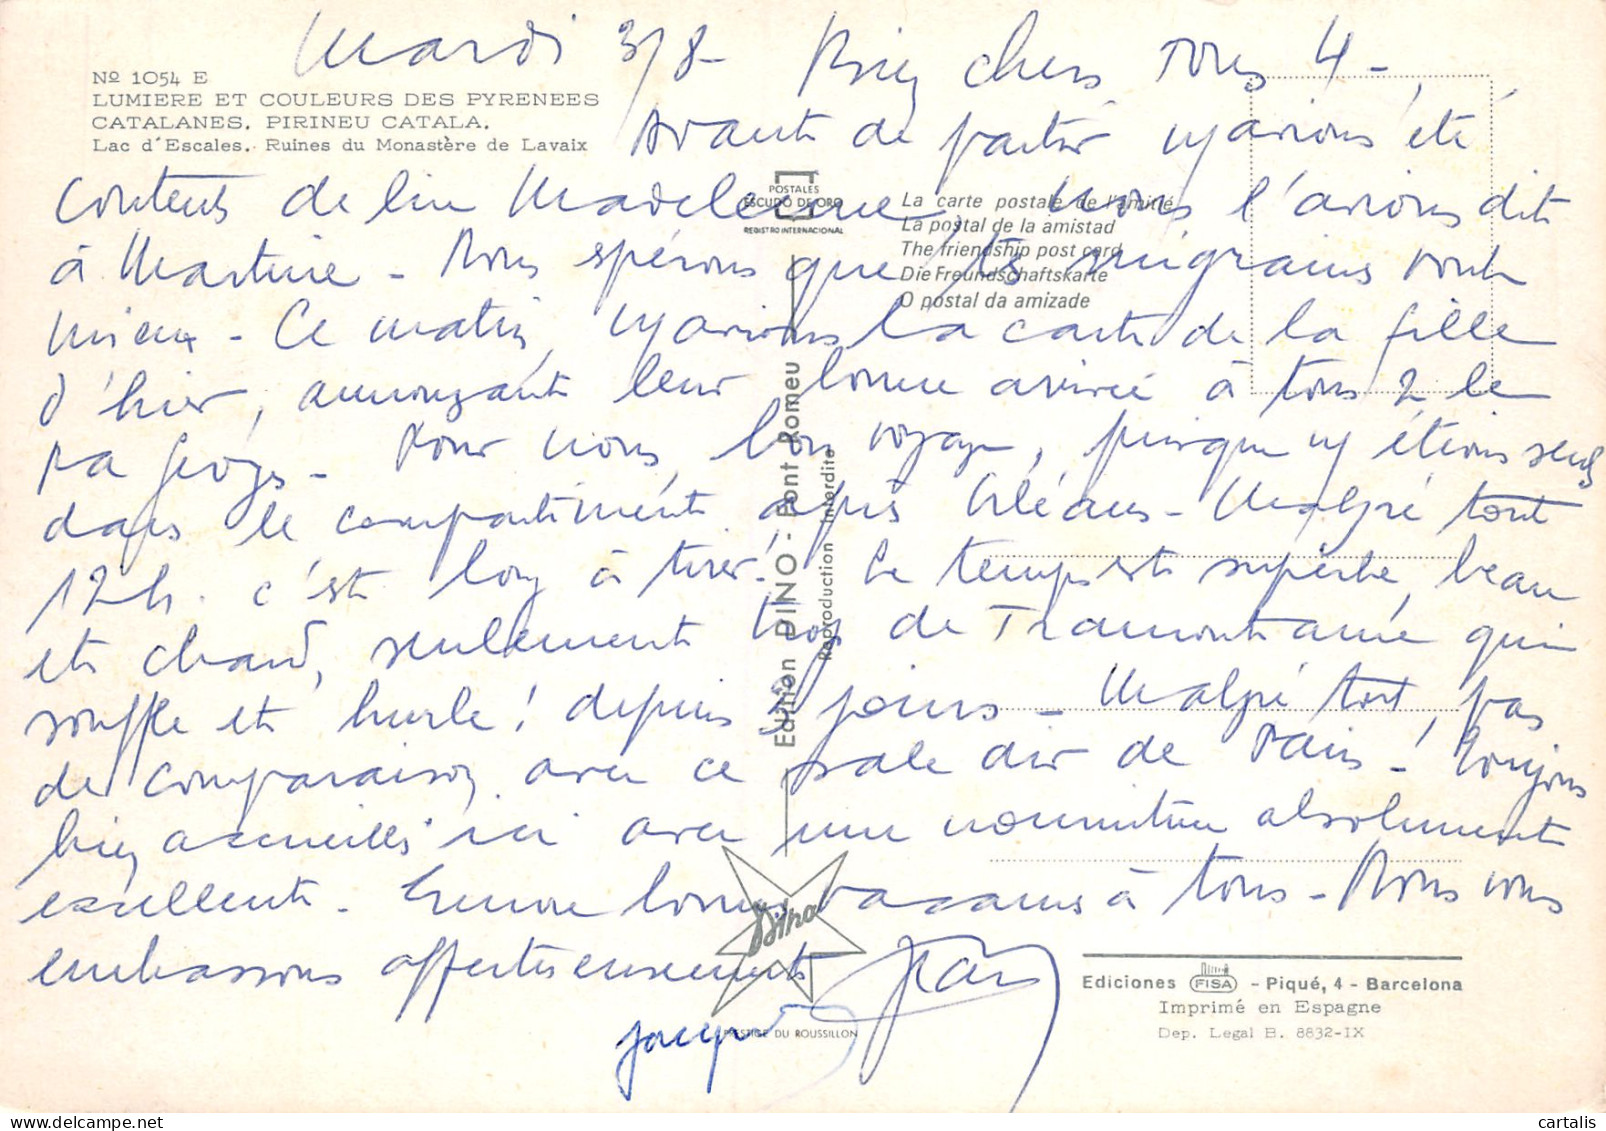 Mardi 3/8 - Bien chers vous 4 -
Nº 1054 E
LUMIERE ET COULEURS DES PYRENEES
CATALANES. PIRINEU CATALA.
Lac d'Escales. Ruines du Monastère de Lavaix
POSTALES
ESCUDO DE ORO
REGISTRO INTERNACIONAL
La carte postale de l'amitié
La postal de la amistad
The friendship post card
Die Freundschaftskarte
O postal da amizade
Avant de partir, ns avions été
contents de lire Madeleine. Nous l'avions dit
à Martine - Nous espérons que les migraines vont
mieux - Ce matin, ns avions la carte de la fille
d'hier, annonçant leur bonne arrivée à tous 2 le
Pour nous, bon voyage, puisque ns étions seuls
dans le compartiment après Orléans - Malgré tout
12h. c'est long à tirer! Le temps est superbe, beau
et chaud, seulement trop de Tramontane qui
souffle et hurle! depuis 3 jours - Malgré tout, pas
de comparaison avec ce sale air de Paris! Toujours
bien accueillis ici avec une nourriture absolument
excellente. Encore bonnes vacances à tous - Nous vous
embrassons affectueusement
Jean
Jacqu
Edition DINO - Font Romeu
Reproduction Interdite
Dino
PRESTIGE DU ROUSSILLON
Ediciones FISA - Piqué, 4 - Barcelona
Imprimé en Espagne
Dep. Legal B. 8832-IX
cartalis